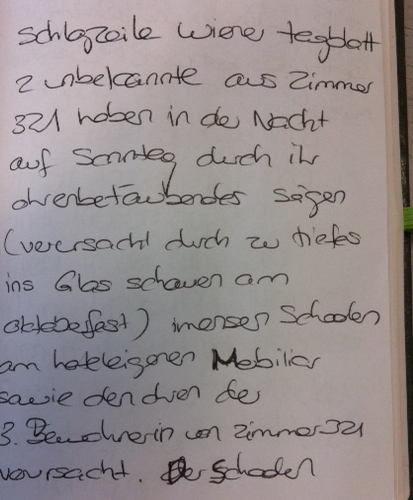 Schlagzeile Wiener tagblatt
2 unbekannte aus Zimmer
321 haben in der Nacht
auf Sonntag durch ihr
ohrenbetäubendes sägen
(verursacht durch zu tiefes
ins Glas schauen am
oktoberfest) imensen Schaden
am hoteleigenen Mobiliar
sowie den ohren der
3. Bewohnerin von Zimmer 321
verursacht. Der Schaden